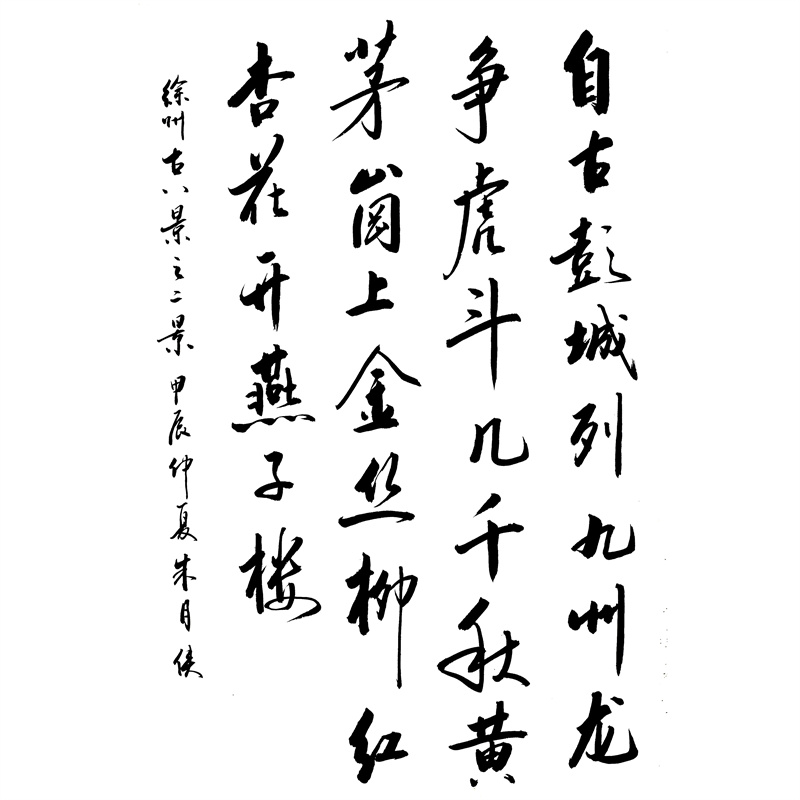 自古彭城列九州龙
争虎斗几千秋黄
茅岗上金丝柳红
杏花开燕子楼
徐州古八景之二景甲辰仲夏朱月侠